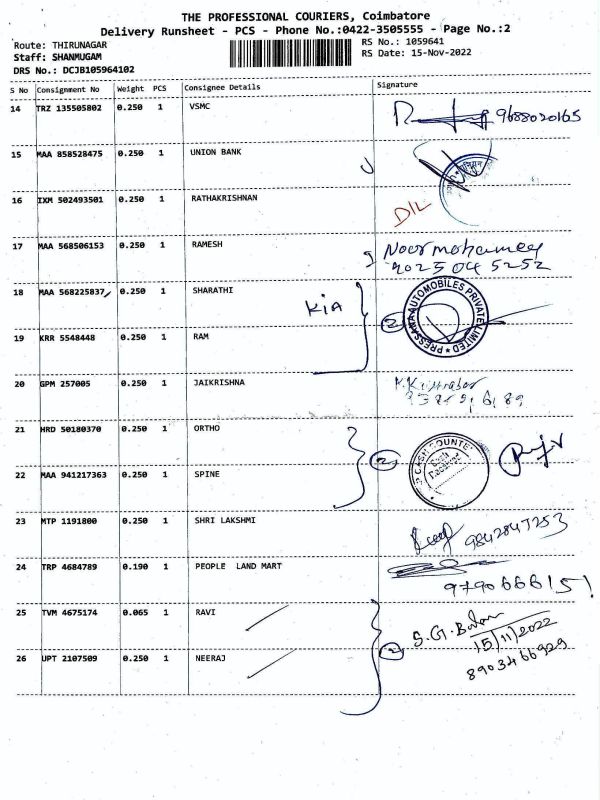 THE PROFESSIONAL COURIERS, Coimbatore
Delivery Runsheet - PCS - Phone No.:0422-3505555 - Page No.:2
Route: THIRUNAGAR
Staff: SHANMUGAM
DRS No.: DCJB105964102
RS No.: 1059641
RS Date: 15-Nov-2022
S No Consignment No Weight PCS Consignee Details Signature
14 TRZ 135505802 0.250 1 VSMC 9688020165
15 MAA 858528475 0.250 1 UNION BANK
16 IXM 502493501 0.250 1 RATHAKRISHNAN D/L
17 MAA 568506153 0.250 1 RAMESH Noormohamed
9025045252
18 MAA 568225837 0.250 1 SHARATHI KIA 2
PRESANA AUTOMOBILES PRIVATE LIMITED
19 KRR 5548448 0.250 1 RAM
20 GPM 257005 0.250 1 JAIKRISHNA
21 HRD 50180370 0.250 1 ORTHO 2
CASH COUNTE
22 MAA 941217363 0.250 1 SPINE
23 MTP 1191800 0.250 1 SHRI LAKSHMI 9842847253
24 TRP 4684789 0.190 1 PEOPLE LAND MART
9790666151
25 TVM 4675174 0.065 1 RAVI S.G.
15/11/2022
26 UPT 2107509 0.250 1 NEERAJ 2 8903466929